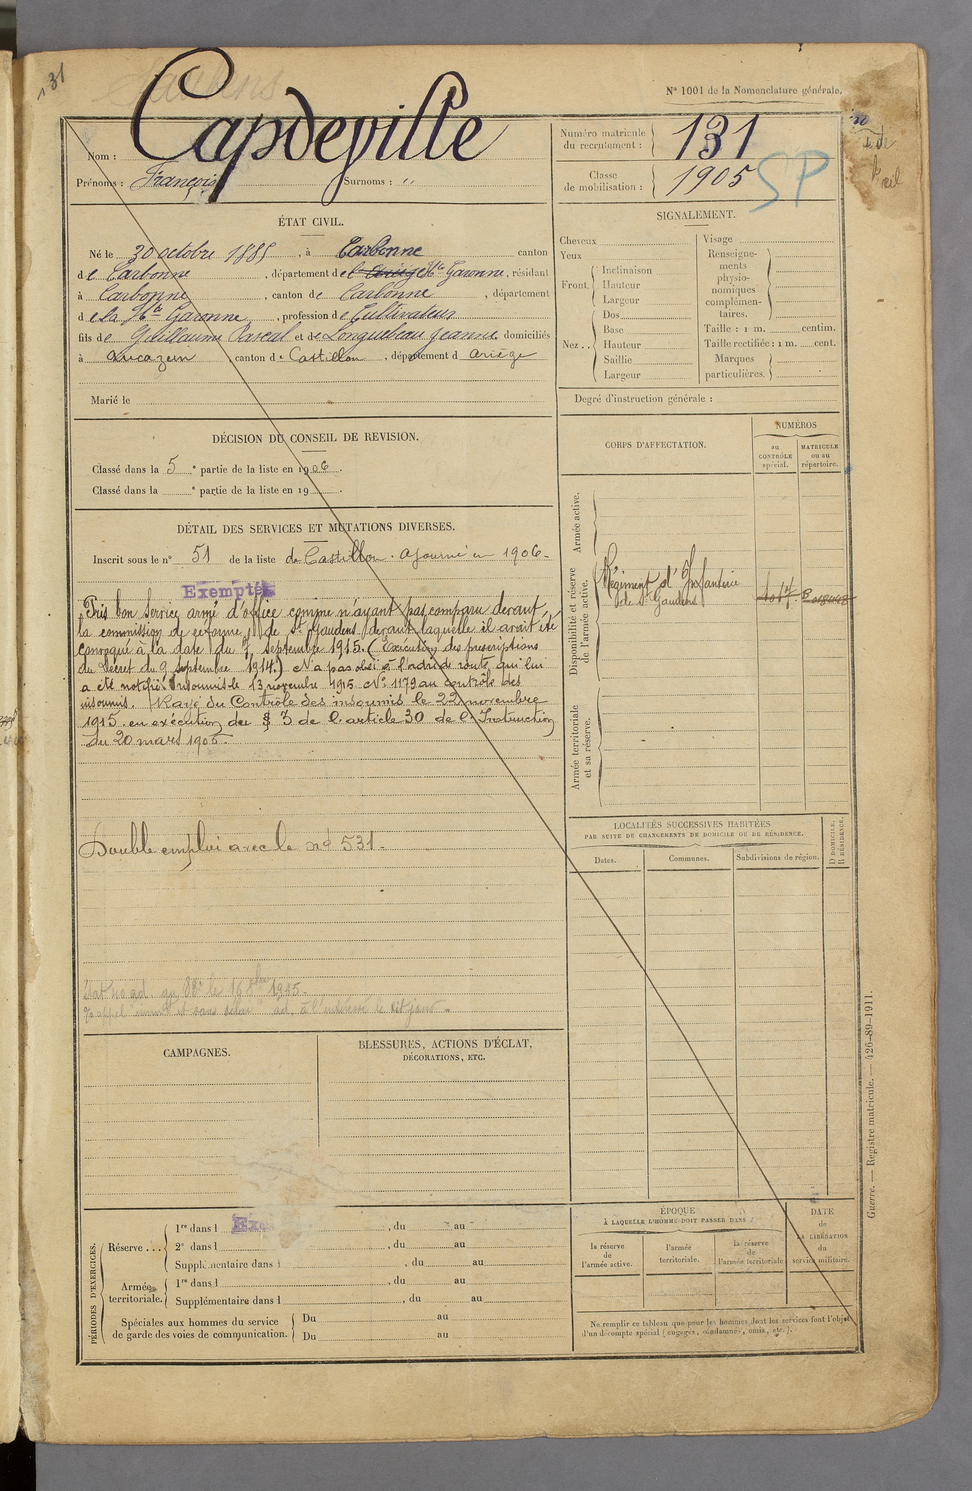 131
N° 1001 de la Nomenclature générale.
Nom : Capdeville
Prénoms : François Surnoms : "
Numéro matricule du recrutement : 131
Classe de mobilisation : 1905
SP
ÉTAT CIVIL.
Né le 30 octobre 1885, à Carbonne canton
de Carbonne, département de l'Ariège Hte Garonne, résidant
à Carbonne, canton de Carbonne, département
de la Hte Garonne, profession de Cultivateur
fils de Guillaume Pascal et de Longuebau Jeanne domiciliés
à canton de Castillon, département d Ariège
Marié le
SIGNALEMENT.
Cheveux
Yeux
Front. Inclinaison
Hauteur
Largeur
Nez .. Dos
Base
Hauteur
Saillie
Largeur
Visage
Renseignements physionomiques complémentaires.
Taille : 1 m. centim.
Taille rectifiée : 1 m. cent.
Marques particulières.
Degré d'instruction générale :
DÉCISION DU CONSEIL DE REVISION.
Classé dans la 5e partie de la liste en 1906.
Classé dans la e partie de la liste en 19 .
CORPS D'AFFECTATION.
NUMÉROS
au CONTRÔLE spécial.
MATRICULE ou au répertoire.
Armée active.
Disponibilité et réserve de l'armée active.
Régiment d'Infanterie
de St Gaudens
Armée territoriale et sa réserve.
DÉTAIL DES SERVICES ET MUTATIONS DIVERSES.
Inscrit sous le n° 51 de la liste de Castillon. Ajourné en 1906.
Exempté
Pris bon service armé d'office comme n'ayant pas comparu devant
la commission de réforme de St Gaudens devant laquelle il avait été
convoqué à la date du 7 septembre 1915. (Exécution des prescriptions
du Décret du 9 septembre 1914.) N'a pas obéi à l'ordre de route qui lui
a été notifié. Insoumis le 13 novembre 1915 N° 1179 au contrôle des
insoumis. Rayé du Contrôle des insoumis le 22 novembre
1915 en exécution du § 3 de l'article 30 de l'Instruction
du 20 mars 1906.
Double emploi avec le n° 531.
LOCALITÉS SUCCESSIVES HABITÉES
PAR SUITE DE CHANGEMENTS DE DOMICILE OU DE RÉSIDENCE.
Dates.
Communes.
Subdivisions de région.
D. DOMICILE.
R. RÉSIDENCE.
CAMPAGNES.
BLESSURES, ACTIONS D'ÉCLAT,
DÉCORATIONS, ETC.
PÉRIODES D'EXERCICES.
Réserve ... 1re dans l , du au
2e dans l , du au
Supplémentaire dans l , du au
Armée territoriale. 1re dans l , du au
Supplémentaire dans l , du au
Spéciales aux hommes du service de garde des voies de communication. Du au
Du au
ÉPOQUE
À LAQUELLE L'HOMME DOIT PASSER DANS
la réserve de l'armée active.
l'armée territoriale.
la réserve de l'armée territoriale
DATE de LA LIBÉRATION du service militaire.
Ne remplir ce tableau que pour les hommes dont les services font l'objet
d'un décompte spécial (engagés, condamnés, omis, etc.).
Guerre. — Registre matricule. — 426-89-1911.